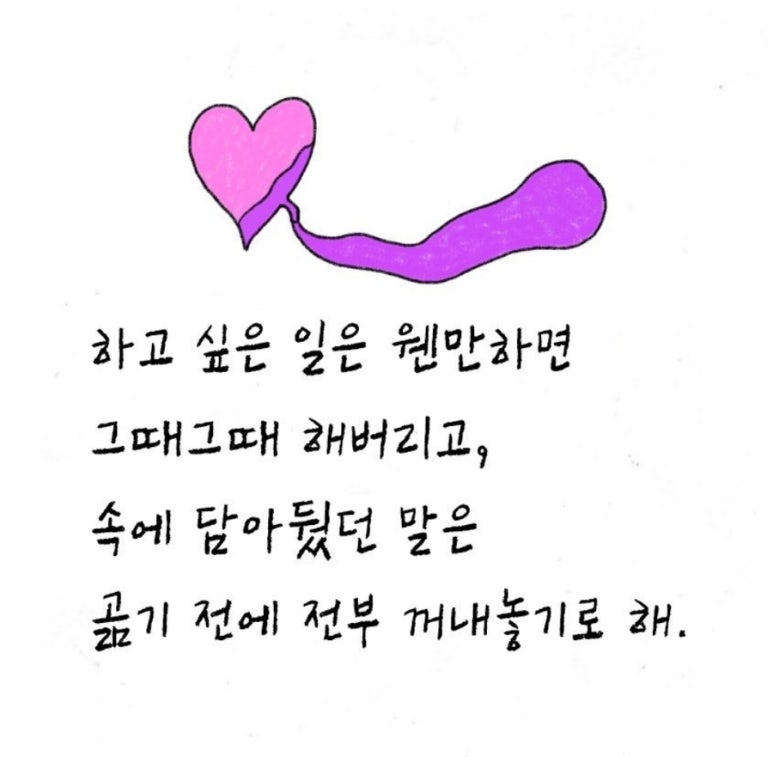 하고 싶은 일은 웬만하면
그때그때 해버리고,
속에 담아뒀던 말은
곪기 전에 전부 꺼내놓기로 해.